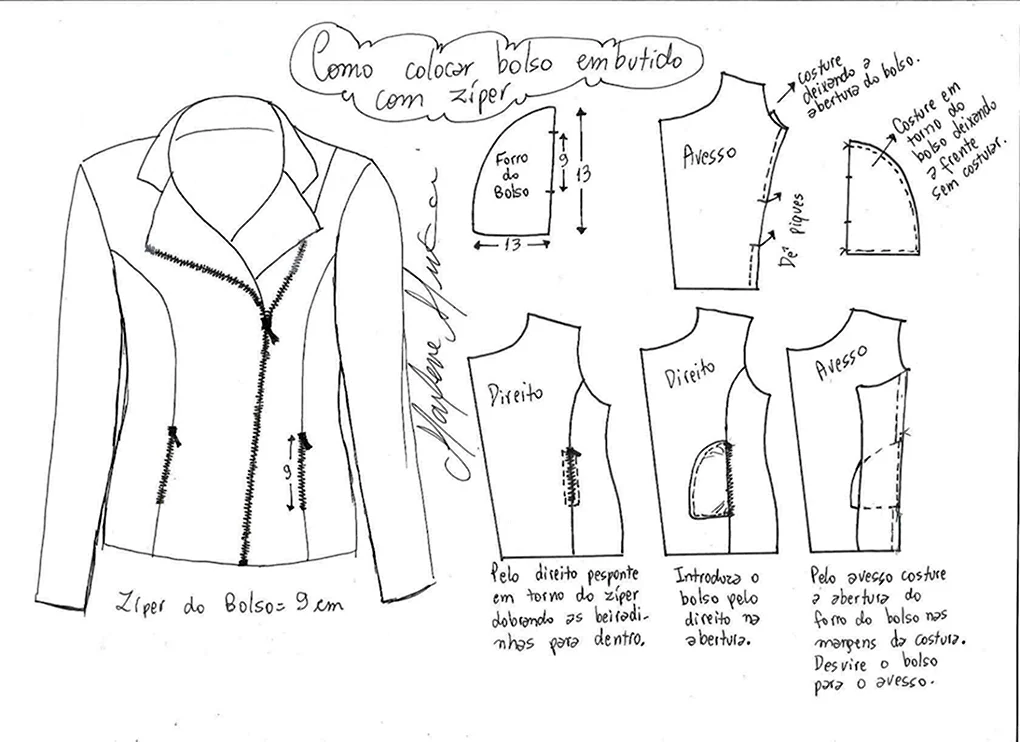 Como colocar bolso embutido
com zíper
costure
deixando a
abertura do bolso.
Forro
do
Bolso
9
13
13
Avesso
Dê piques
Costure em
torno do
bolso deixando
a frente
sem costurar.
Marlene Mukai
Direito
Direito
Avesso
9
Zíper do Bolso= 9 cm
Pelo direito pesponte
em torno do zíper
dobrando as beiradi-
nhas para dentro.
Introduza o
bolso pelo
direito na
abertura.
Pelo avesso costure
a abertura do
forro do bolso nas
margens da costura.
Desvire o bolso
para o avesso.